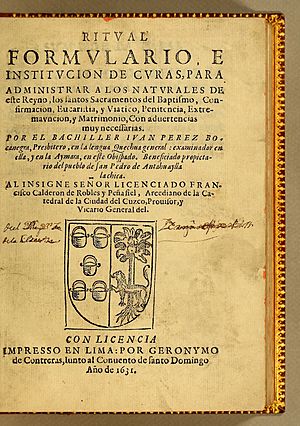 RITUAL
FORMVLARIO, E
INSTITVCION DE CVRAS, PARA
ADMINISTRAR A LOS NATVRALES DE
este Reyno, los santos Sacramentos del Baptismo, Con-
firmacion, Eucaristia, y Viatico, Penitencia, Extre-
mavncion, y Matrimonio, Con aduertencias
muy necessarias.
POR EL BACHILLER IVAN PEREZ BO-
canegra, Presbitero, en la lengua Quechua general: examinador en
ella, y en la Aymara, en este Obispado. Beneficiado propieta-
rio del pueblo de san Pedro de Antahuaylla
la chica.
AL INSIGNE SEÑOR LICENCIADO FRAN-
cisco Calderon de Robles y Peñafiel, Arcediano de la Ca-
tedral de la Ciudad del Cuzco, Prouisor, y
Vicario General del.
CON LICENCIA
IMPRESSO EN LIMA: POR GERONYMO
de Contreras, Iunto al Conuento de santo Domingo
Año de 1631.